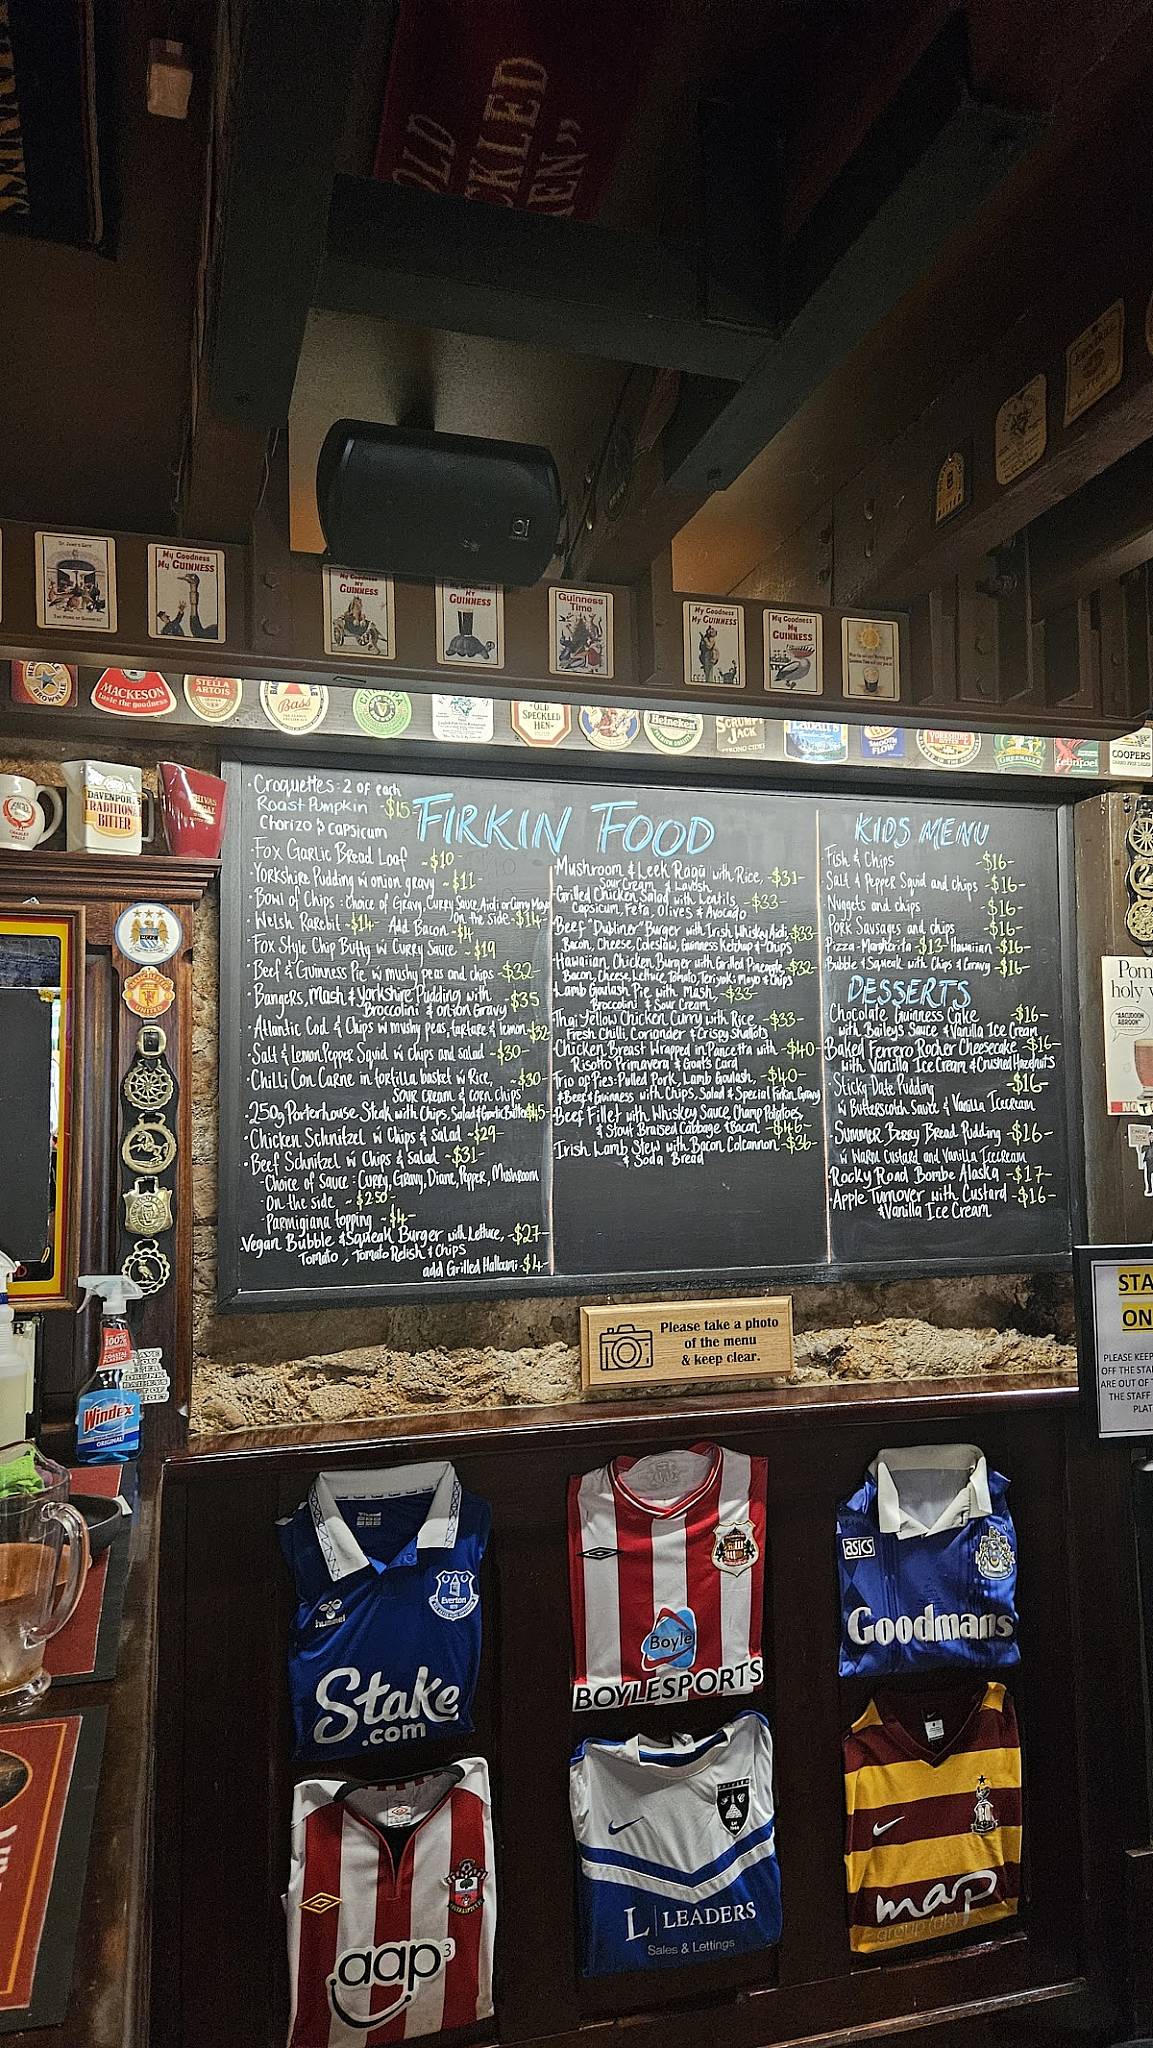 OLD
CKLED
EN"
My Goodness
My GUINNESS
My Goodness
My
GUINNESS
My Goodness
My
GUINNESS
Guinness
Time
My Goodness
My
GUINNESS
My Goodness
My
GUINNESS
BROWN ALE
MACKESON
taste the goodness
STELLA
ARTOIS
Bass
OLD
SPECKLED
HEN
Heineken
SCRUMPY
JACK
SMOOTH
FLOW
GREENALLS
COOPERS
DAVENPORTS
TRADITIONAL
BITTER
FIRKIN FOOD
· Croquettes: 2 of each
Roast Pumpkin -$15-
Chorizo & capsicum
· Fox Garlic Bread Loaf -$10-
· Yorkshire Pudding w onion gravy -$11-
· Bowl of Chips: choice of Gravy, Curry Sauce, Aioli or Curry Mayo
on the side -$14-
· Welsh Rarebit -$14- Add Bacon -$4-
· Fox Style Chip Butty w Curry Sauce -$19
· Beef & Guinness Pie w mushy peas and chips -$32-
· Bangers, Mash & Yorkshire Pudding with
Broccolini & onion Gravy -$35
· Atlantic Cod & Chips w mushy peas, tartare & lemon -$32
· Salt & Lemon Pepper Squid w Chips and salad -$30-
· Chilli Con Carne in tortilla basket w Rice, -$30-
sour cream & corn chips
· 250g Porterhouse Steak with Chips, Salad & Garlic Butter $45-
· Chicken Schnitzel w Chips & Salad -$29-
· Beef Schnitzel w Chips & Salad -$31-
- Choice of Sauce: Curry, Gravy, Diane, Pepper, Mushroom
- On the side -$2.50-
- Parmigiana topping -$4-
· Vegan Bubble & Squeak Burger with Lettuce, -$27-
Tomato, Tomato Relish & Chips
add Grilled Halloumi -$4-
· Mushroom & Leek Ragu with Rice, -$31-
Sour Cream & Lavosh
· Grilled Chicken Salad with Lentils, -$33-
Capsicum, Feta, Olives & Avocado
· Beef "Dubliner" Burger with Irish Whiskey Aioli, -$33-
Bacon, Cheese, Coleslaw, Guinness Ketchup & Chips
· Hawaiian Chicken Burger with Grilled Pineapple, -$32-
Bacon, Cheese, Lettuce, Tomato, Teriyaki Mayo & Chips
· Lamb Goulash Pie with Mash, -$33-
Broccolini & Sour Cream
· Thai Yellow Chicken Curry with Rice -$33-
Fresh Chilli, Coriander & Crispy Shallots
· Chicken Breast Wrapped in Pancetta with -$40-
Risotto Primavera & Goat's Curd
· Trio of Pies: Pulled Pork, Lamb Goulash, -$40-
& Beef & Guinness with Chips, Salad & Special Firkin Gravy
· Beef Fillet with Whiskey Sauce, Champ Potatoes,
& Stout Braised Cabbage & Bacon -$46-
· Irish Lamb Stew with Bacon Colcannon -$36-
& Soda Bread
KIDS MENU
· Fish & Chips -$16-
· Salt & Pepper Squid and chips -$16-
· Nuggets and chips -$16-
· Pork Sausages and chips -$16-
· Pizza - Margherita -$13- Hawaiian -$16-
· Bubble & Squeak with Chips & Gravy -$16-
DESSERTS
· Chocolate Guinness Cake -$16-
with Baileys Sauce & Vanilla Ice Cream
· Baked Ferrero Rocher Cheesecake -$16-
with Vanilla Ice Cream & Crushed Hazelnuts
· Sticky Date Pudding -$16-
w Butterscotch Sauce & Vanilla Icecream
· Summer Berry Bread Pudding -$16-
w Warm Custard and Vanilla Icecream
· Rocky Road Bombe Alaska -$17-
· Apple Turnover with Custard -$16-
& Vanilla Ice Cream
Pom
holy
Please take a photo
of the menu
& keep clear.
STA
ON
PLEASE KEEP
OFF THE STA
ARE OUT OF
THE STAFF
PLAT
100%
Windex
ORIGINAL
hummel
Everton
Stake
.com
Boyle
BOYLESPORTS
asics
Goodmans
aap3
L | LEADERS
Sales & Lettings
map
group (uk)